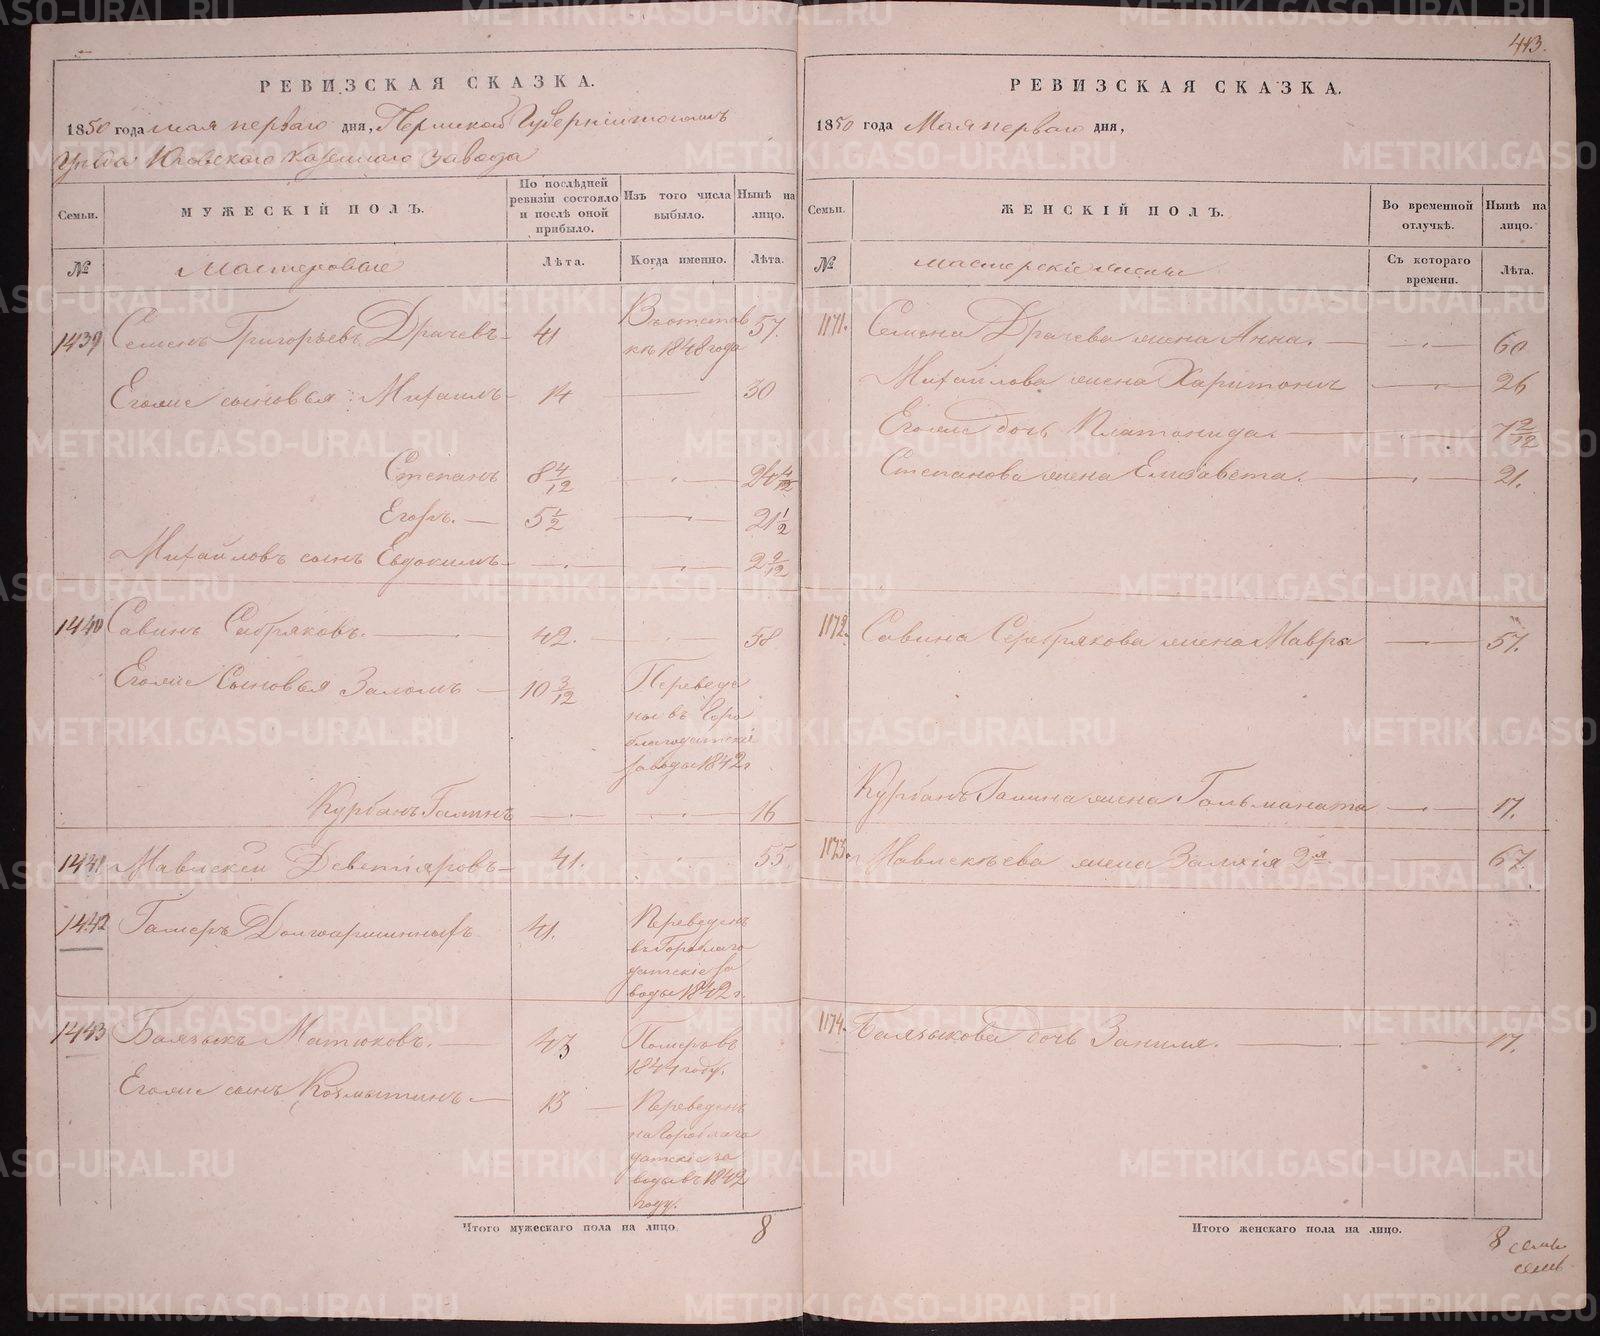 413.
РЕВИЗСКАЯ СКАЗКА.
1850 года мая перваго дня, Пермской Губерніи тогожъ
Уѣзда Юговскаго казеннаго завода
Семьи.
МУЖЕСКІЙ ПОЛЪ.
По послѣдней ревизіи состояло и послѣ оной прибыло.
Изъ того числа выбыло.
Нынѣ на лицо.
№
Мастеровые
Лѣта.
Когда именно.
Лѣта.
1439 Семенъ Григорьевъ Драчевъ 41 Въ отстав 57.
кѣ 1848 года
Егоже сыновья: Михаилъ 14 30
Степанъ 8 4/12 24 4/12
Егоръ. 5 1/2 21 1/2
Михайловъ сынъ Евдокимъ 2 2/12
1440 Савинъ 42. 58
Егоже Сыновья 10 3/12 Переведе
ног въ Горо
благодатскіе
заводы 1842 г
Курбанъ Галинъ 16
1441 Мавлекей Деветіяровъ 41. 55
1442 Гамеръ 41. Переведенъ
въ Гороблаго
датскіе за
воды 1842 г.
1443 Балзыкъ Матюковъ. 43 Померъ въ
1844 году.
Егоже сынъ 13 Переведенъ
на Гороблаго
датскіе за
воды въ 1842
году.
Итого мужескаго пола на лицо. 8
РЕВИЗСКАЯ СКАЗКА.
1850 года Мая перваго дня,
Семьи.
ЖЕНСКІЙ ПОЛЪ.
Во временной отлучкѣ.
Нынѣ на лицо.
№
мастерскіе жены
Съ котораго времени.
Лѣта.
1171. Семена Драчева жена Анна. 60
Михайлова жена Харитонія 26
Егоже дочь Платонида. 7 2/12
Степанова жена Елисавета. 21.
1172. Савина Серебрякова жена Мавра 57.
Курбанъ Галина жена 17.
1173. Мавлекѣева жена Залхія 2я 67.
1174. Балзыкова дочь Заниля. 17.
Итого женскаго пола на лицо. 8